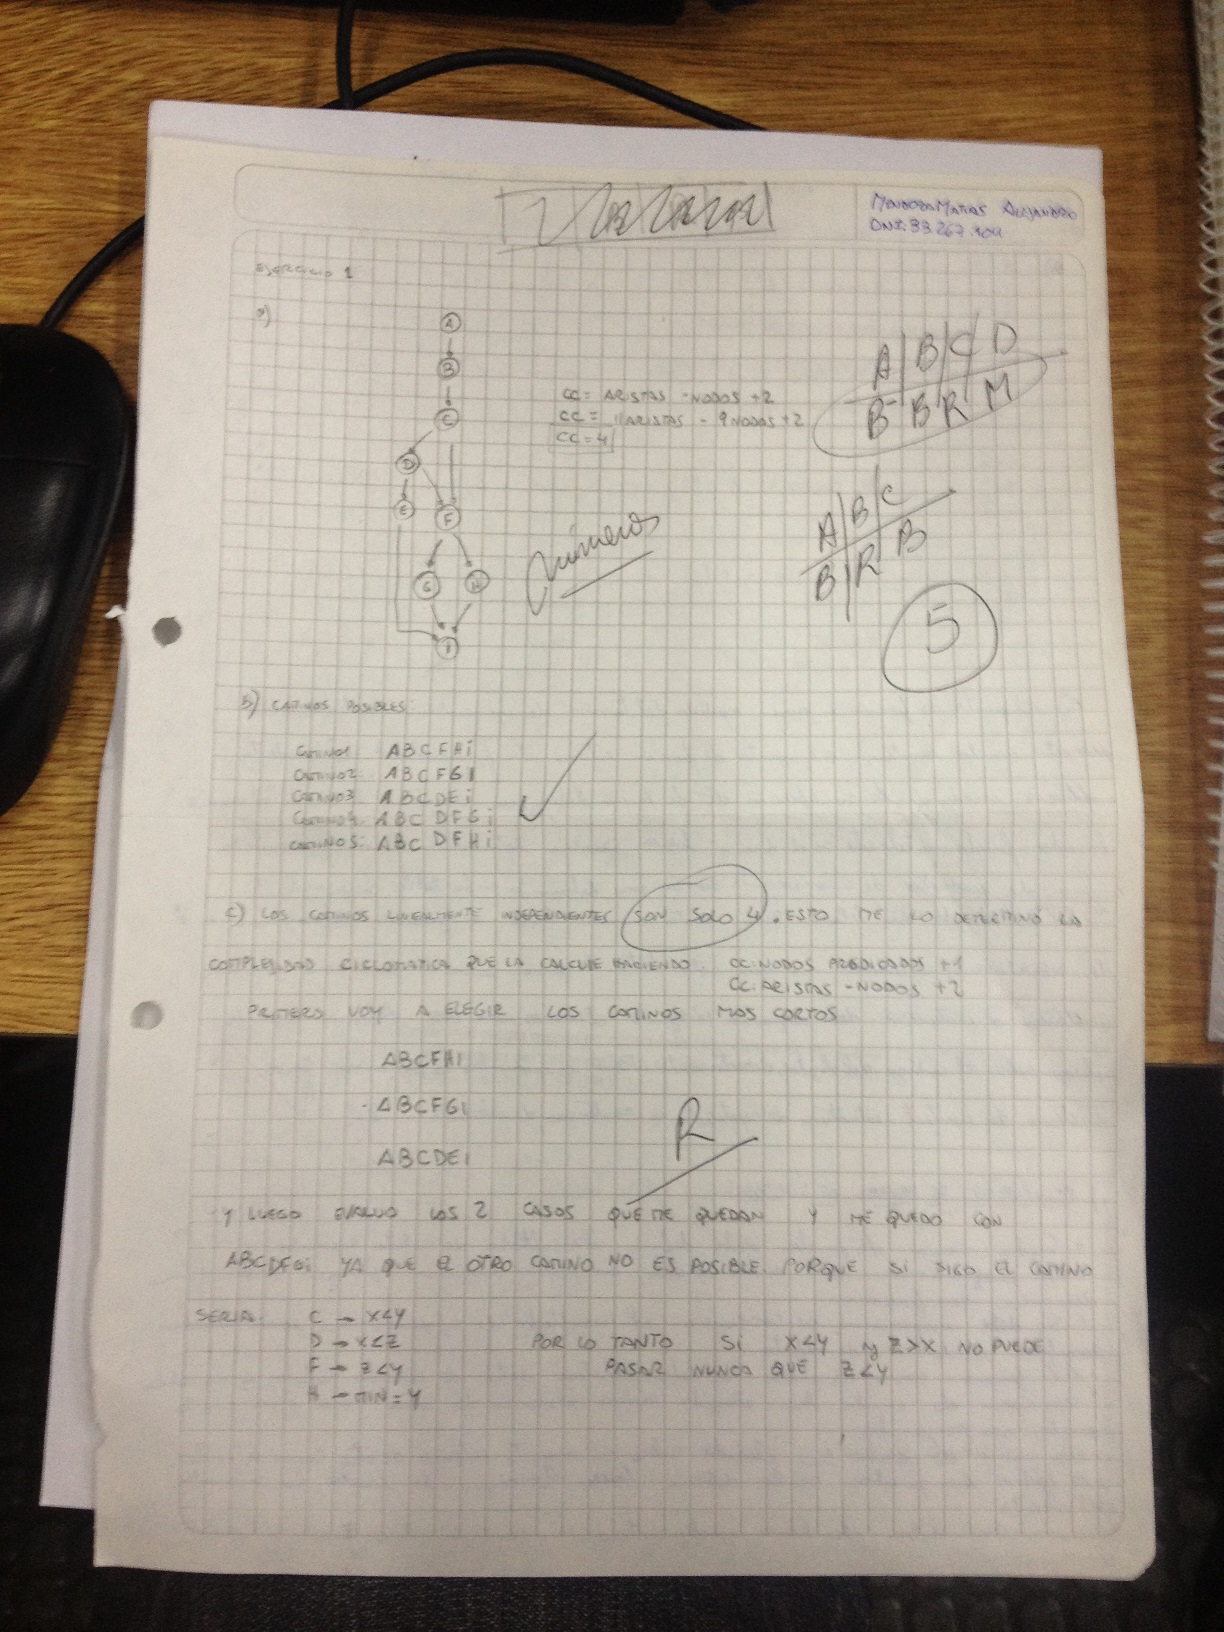 Mendoza Matias Alejandro
DNI: 33.267.104
EJERCICIO 1
a)
A
B
C
D
E
F
G
H
I
CC = ARISTAS - NODOS + 2
CC = 11 ARISTAS - 9 NODOS + 2
CC = 4
A B C D
B- B R M
A B C
B R B
5
Números
b) CAMINOS POSIBLES:
CAMINO1 ABCFHi
CAMINO2 ABCFGI
CAMINO3 ABCDEi
CAMINO4: ABC DFGi
CAMINO5: ABC DFHi
c) LOS CAMINOS LINEALMENTE INDEPENDIENTES SON SOLO 4. ESTO ME LO DETERMINÓ LA
COMPLEJIDAD CICLOMATICA QUE LA CALCULE HACIENDO CC: NODOS PREDICADOS +1
CC: ARISTAS - NODOS +2
PRIMERO VOY A ELEGIR LOS CAMINOS MAS CORTOS
ABCFHI
- ABCFGI
ABCDEI
R
Y LUEGO EVALUO LOS 2 CASOS QUE ME QUEDAN Y ME QUEDO CON
ABCDFGi YA QUE EL OTRO CAMINO NO ES POSIBLE PORQUE SI SIGO EL CAMINO
SERIA: C → X<Y
D → X<Z POR LO TANTO SI X<Y y Z>X NO PUEDE
F → Z<Y PASAR NUNCA QUE Z<Y
H → MIN = Y